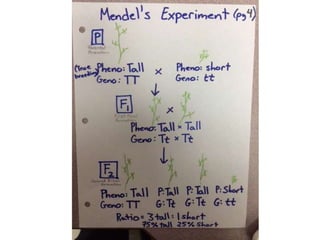 Mendel's Experiment (pg 4)
P
Parental
Generation
(True
breeding)
Pheno: Tall × Pheno: short
Geno: TT Geno: tt
F1
First Filial
Generation
×
Pheno: Tall × Tall
Geno: Tt × Tt
F2
Second Filial
Generation
Pheno: Tall P: Tall P: Tall P: Short
Geno: TT G: Tt G: Tt G: tt
Ratio = 3 tall : 1 short
75% tall 25% short